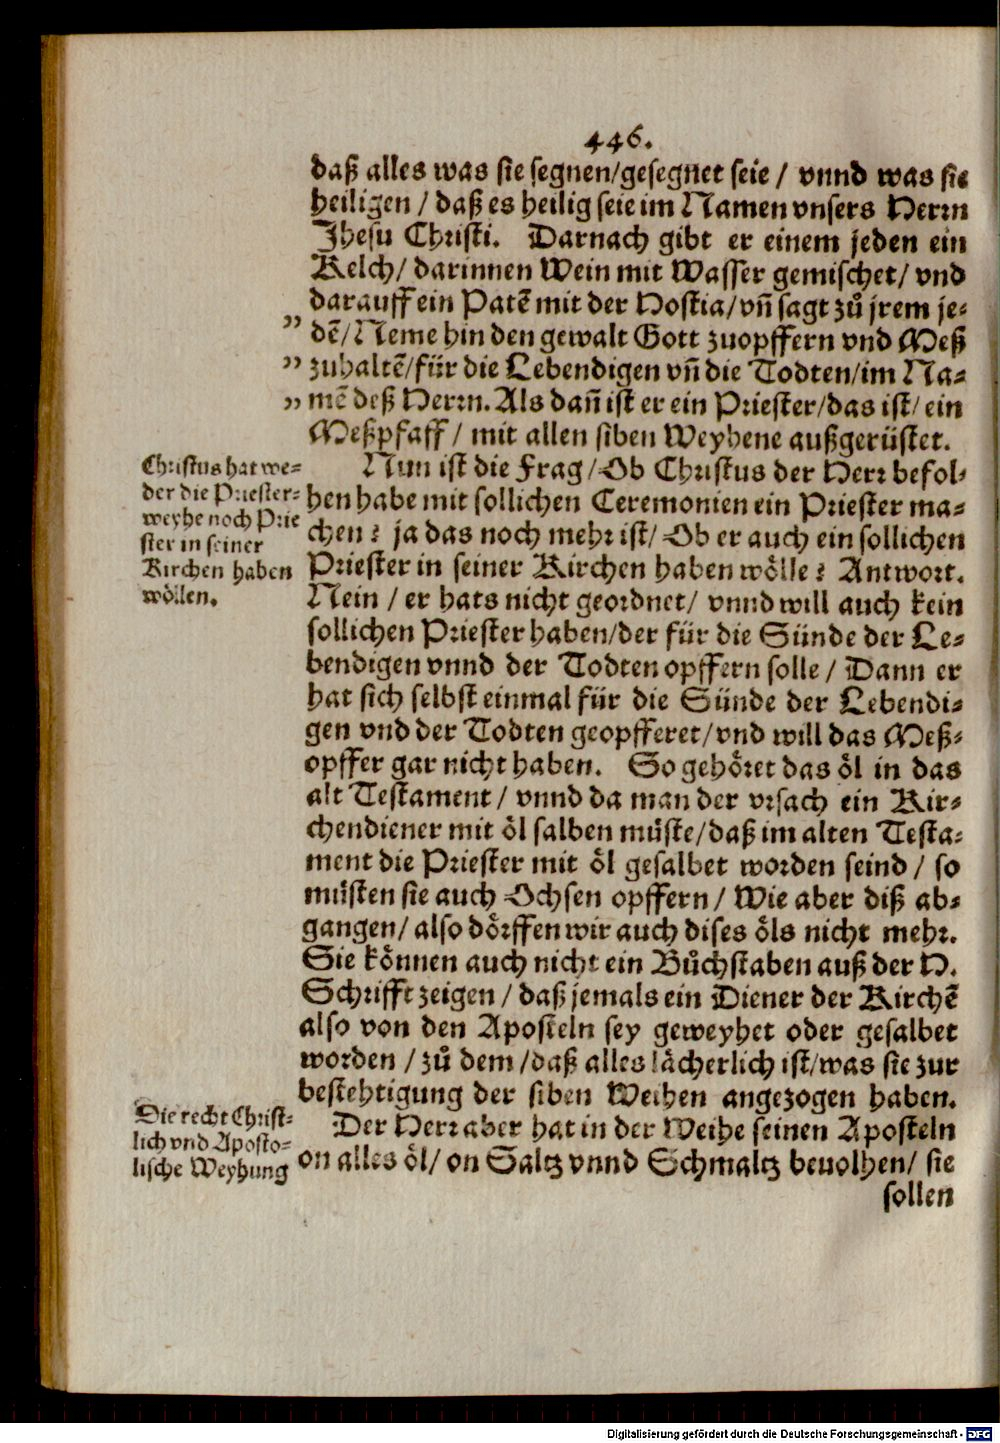 446.
daß alles was sie segnen/gesegnet seie / vnnd was sie
heiligen / daß es heilig seie im Namen vnsers Herrn
Jhesu Christi. Darnach gibt er einem jeden ein
Kelch/ darinnen Wein mit Wasser gemischet/ vnd
darauff ein Patē mit der Hostia/vn̄ sagt zů jrem je-
" dē/Neme hin den gewalt Gott zuopffern vnd Meß
" zuhaltē/für die Lebendigen vn̄ die Todten/im Na-
" mē deß Herrn. Als dan̄ ist er ein Priester/das ist/ ein
Meßpfaff / mit allen siben Weyhene außgerüstet.
Christus hat we-
der die Priester-
weyhe noch Prie
ster in seiner
Kirchen haben
wöllen.
Nun ist die Frag/Ob Christus der Herr befol-
hen habe mit sollichen Ceremonien ein Priester ma-
chen? ja das noch mehr ist/ Ob er auch ein sollichen
Priester in seiner Kirchen haben wölle? Antwort.
Nein / er hats nicht geordnet/ vnnd will auch kein
sollichen Priester haben/der für die Sünde der Le-
bendigen vnnd der Todten opffern solle / Dann er
hat sich selbst einmal für die Sünde der Lebendi-
gen vnd der Todten geopfferet/vnd will das Meß-
opffer gar nicht haben. So gehöret das öl in das
alt Testament / vnnd da man der vrsach ein Kir-
chendiener mit öl salben müste/daß im alten Testa-
ment die Priester mit öl gesalbet worden seind / so
müsten sie auch Ochsen opffern / Wie aber diß ab-
gangen/ also dörffen wir auch dises öls nicht mehr.
Sie können auch nicht ein Bůchstaben auß der H.
Schrifft zeigen / daß jemals ein Diener der Kirchē
also von den Aposteln sey geweyhet oder gesalbet
worden / zů dem /daß alles lächerlich ist/was sie zur
bestehtigung der siben Weihen angezogen haben.
Die recht Christ-
lich vnd Aposto-
lische Weyhung
Der Herr aber hat in der Weihe seinen Aposteln
on alles öl/ on Saltz vnnd Schmaltz beuolhen/ sie
sollen
Digitalisierung gefördert durch die Deutsche Forschungsgemeinschaft - DFG